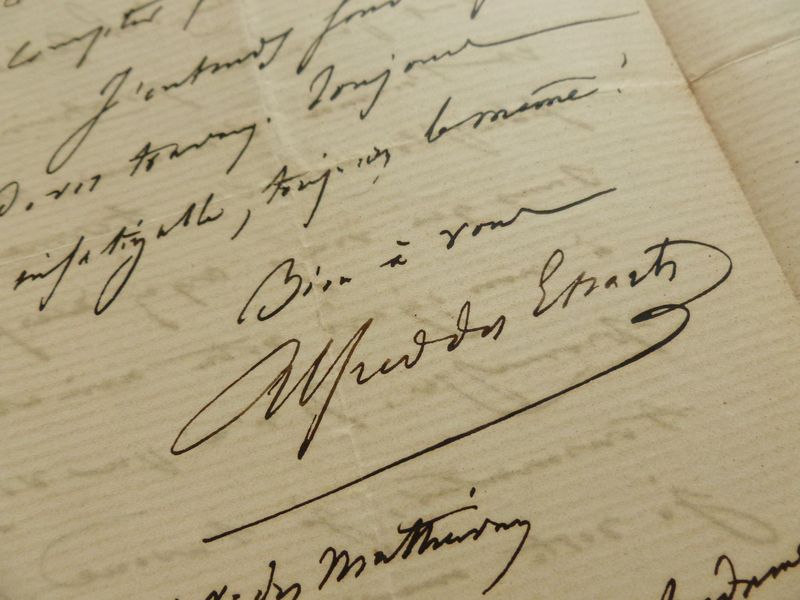 compter
J'entends
vos travaux. Toujours
infatigable, toujours le même!
Bien à vous
Alfred des Essarts
r. des Mathurins